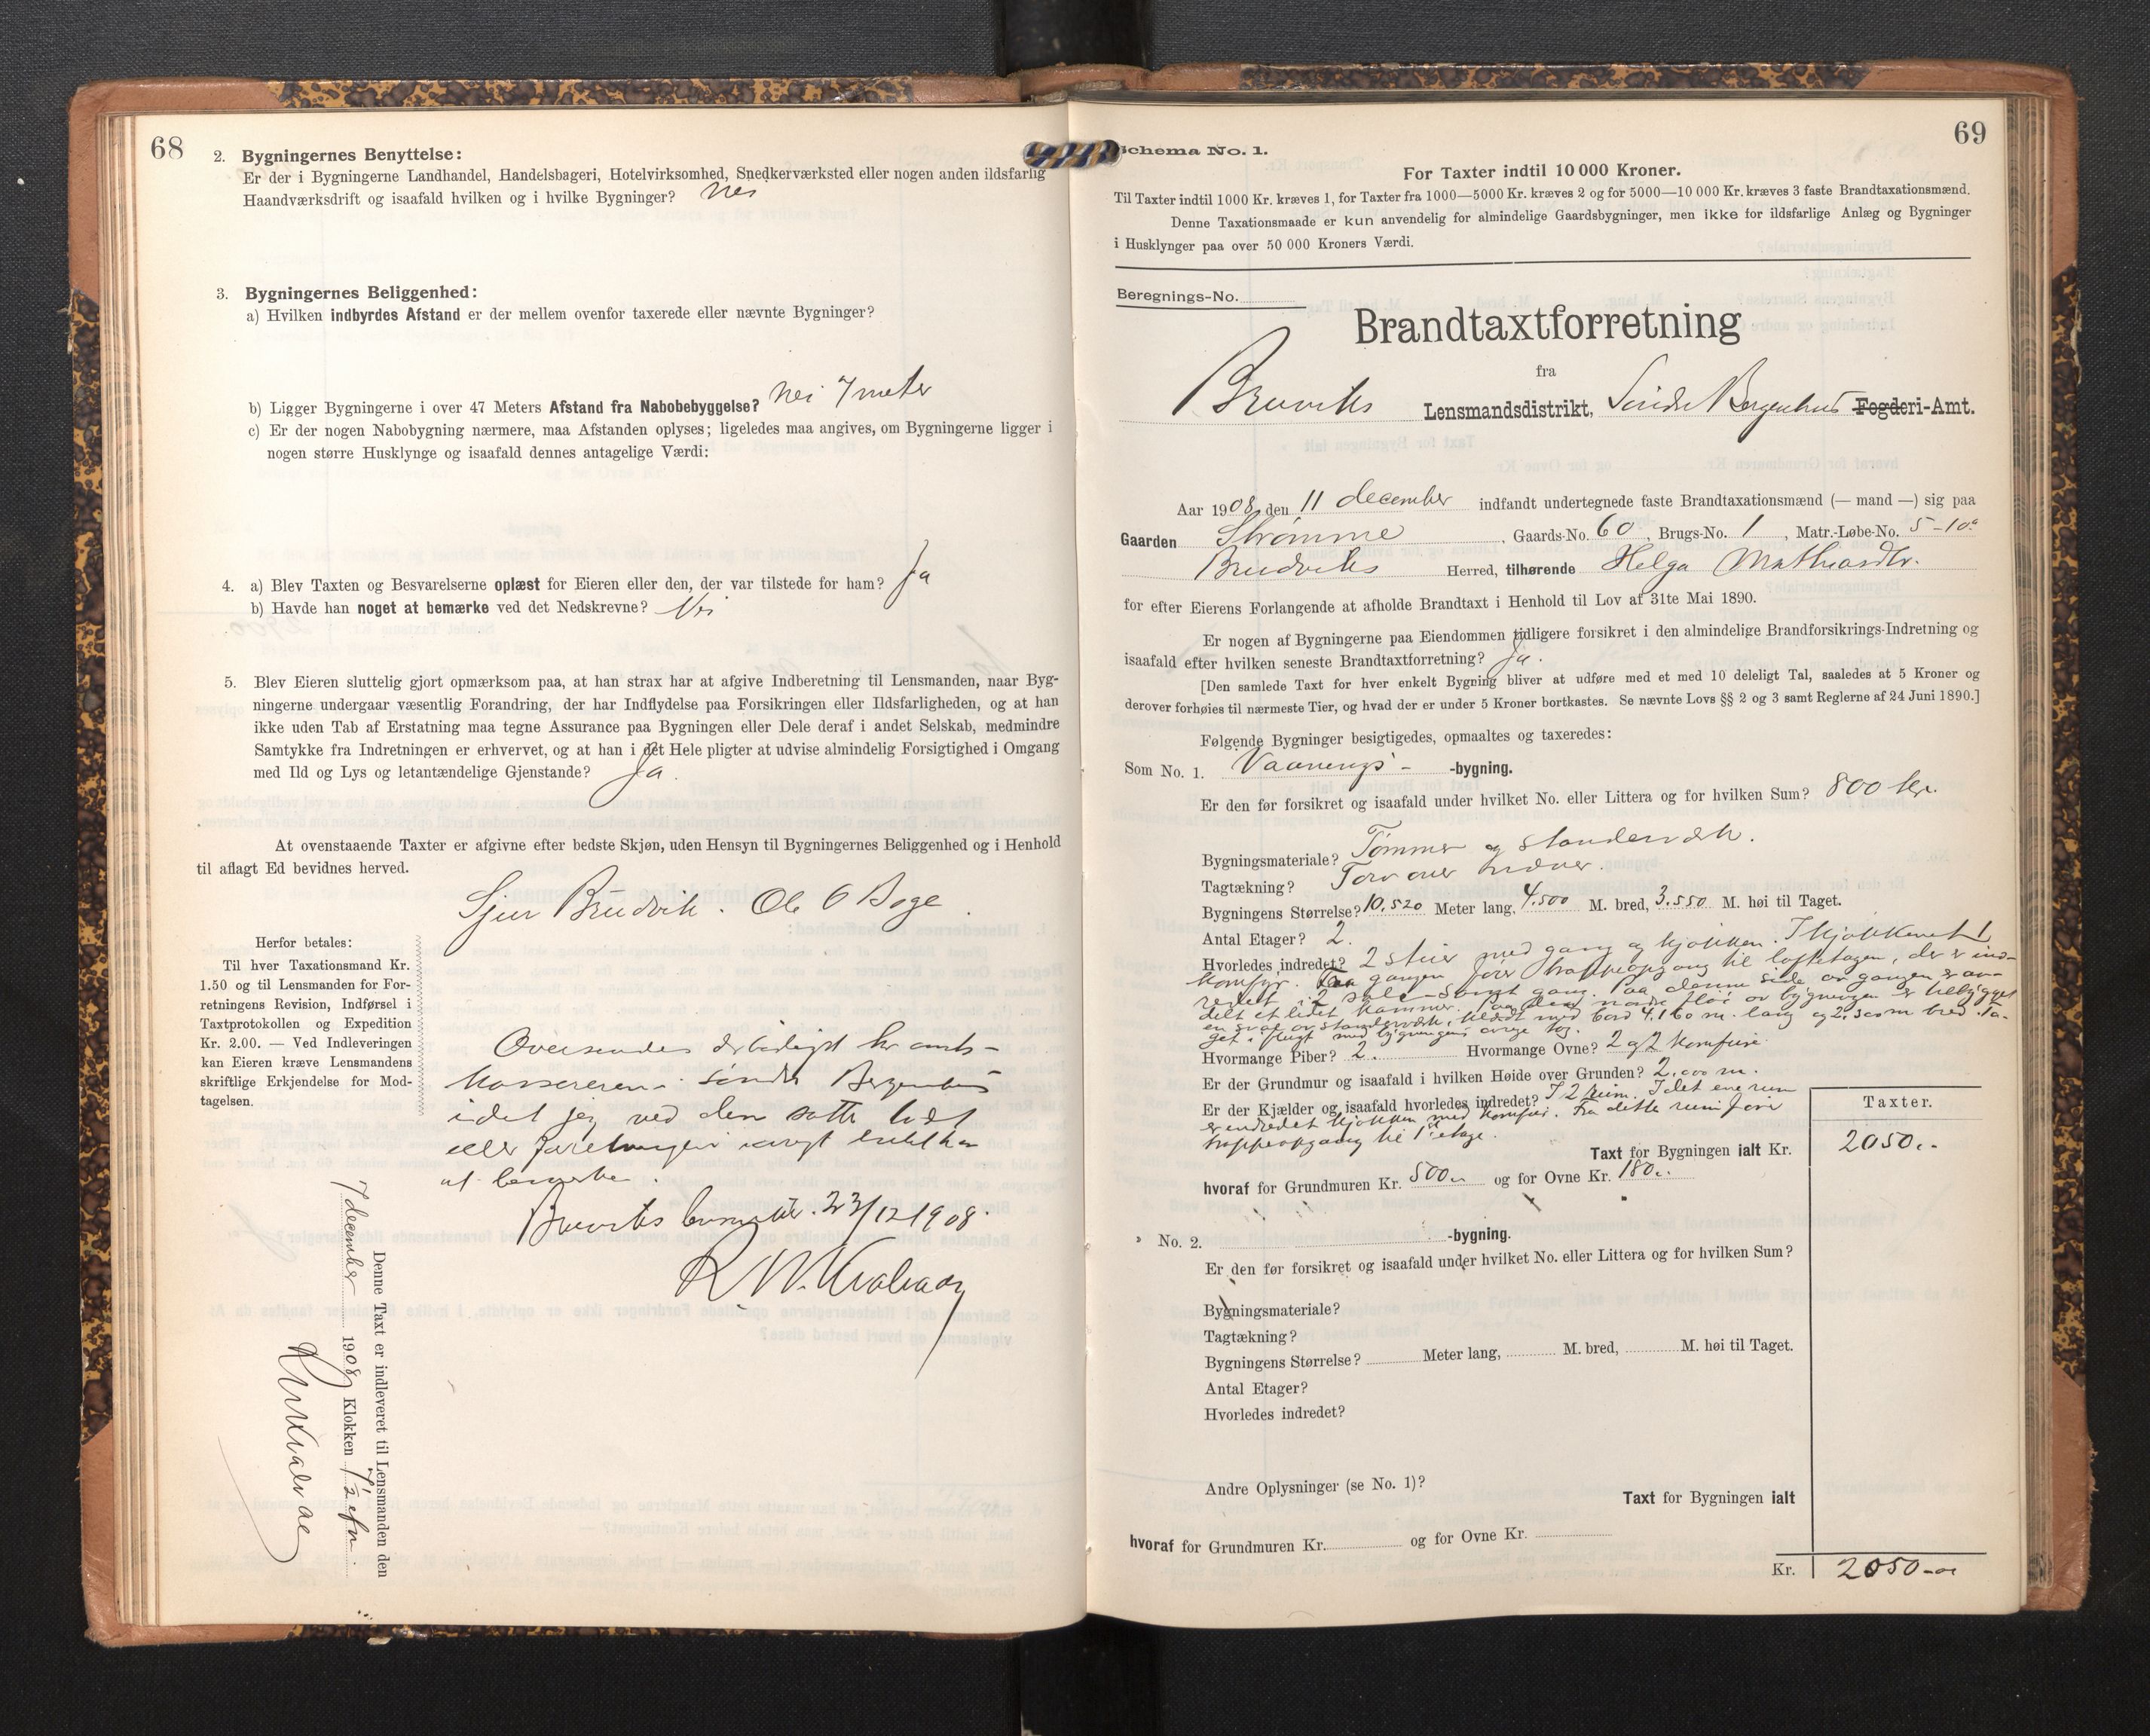 68
2. Bygningernes Benyttelse:
Er der i Bygningerne Landhandel, Handelsbageri, Hotelvirksomhed, Snedkerværksted eller nogen anden ildsfarlig
Haandværksdrift og isaafald hvilken og i hvilke Bygninger? Nei
3. Bygningernes Beliggenhed:
a) Hvilken indbyrdes Afstand er der mellem ovenfor taxerede eller nævnte Bygninger?
b) Ligger Bygningerne i over 47 Meters Afstand fra Nabobebyggelse? Nei 7 meter
c) Er der nogen Nabobygning nærmere, maa Afstanden oplyses; ligeledes maa angives, om Bygningerne ligger i
nogen større Husklynge og isaafald dennes antagelige Værdi:
4. a) Blev Taxten og Besvarelserne oplæst for Eieren eller den, der var tilstede for ham? Ja
b) Havde han noget at bemærke ved det Nedskrevne? Nei
5. Blev Eieren sluttelig gjort opmærksom paa, at han strax har at afgive Indberetning til Lensmanden, naar Byg-
ningerne undergaar væsentlig Forandring, der har Indflydelse paa Forsikringen eller Ildsfarligheden, og at han
ikke uden Tab af Erstatning maa tegne Assurance paa Bygningen eller Dele deraf i andet Selskab, medmindre
Samtykke fra Indretningen er erhvervet, og at han i det Hele pligter at udvise almindelig Forsigtighed i Omgang
med Ild og Lys og letantændelige Gjenstande? Ja.
At ovenstaaende Taxter er afgivne efter bedste Skjøn, uden Hensyn til Bygningernes Beliggenhed og i Henhold
til aflagt Ed bevidnes herved.
Sjur Brudvik. Ole O Boge.
Herfor betales:
Til hver Taxationsmand Kr.
1.50 og til Lensmanden for For-
retningens Revision, Indførsel i
Taxtprotokollen og Expedition
Kr. 2.00. — Ved Indleveringen
kan Eieren kræve Lensmandens
skriftlige Erkjendelse for Mod-
tagelsen.
Oversendes ærbødigst hr amts-
kassereren i søndre Bergenhus
idet jeg ved den satte takst
eller forretningen iøvrigt intet har
at bemerke.
Bruviks 23/12 1908.
Denne Taxt er indleveret til Lensmanden den
7 december 1908 Klokken 7½ efm
69
Schema No. 1.
For Taxter indtil 10 000 Kroner.
Til Taxter indtil 1000 Kr. kræves 1, for Taxter fra 1000—5000 Kr. kræves 2 og for 5000—10 000 Kr. kræves 3 faste Brandtaxationsmænd.
Denne Taxationsmaade er kun anvendelig for almindelige Gaardsbygninger, men ikke for ildsfarlige Anlæg og Bygninger
i Husklynger paa over 50 000 Kroners Værdi.
Beregnings-No.
Brandtaxtforretning
fra
Bruviks Lensmandsdistrikt, Søndre Bergenhus Fogderi-Amt.
Aar 1908 den 11 december indfandt undertegnede faste Brandtaxationsmænd (— mand —) sig paa
Gaarden Strømme, Gaards-No. 60, Brugs-No. 1, Matr.-Løbe-No. 5-10a
Brudviks Herred, tilhørende Helga Mathiasdtr.
for efter Eierens Forlangende at afholde Brandtaxt i Henhold til Lov af 31te Mai 1890.
Er nogen af Bygningerne paa Eiendommen tidligere forsikret i den almindelige Brandforsikrings-Indretning og
isaafald efter hvilken seneste Brandtaxtforretning? Ja.
[Den samlede Taxt for hver enkelt Bygning bliver at udføre med et med 10 deleligt Tal, saaledes at 5 Kroner og
derover forhøies til nærmeste Tier, og hvad der er under 5 Kroner bortkastes. Se nævnte Lovs §§ 2 og 3 samt Reglerne af 24 Juni 1890.]
Følgende Bygninger besigtigedes, opmaaltes og taxeredes:
Som No. 1. Vaanings- -bygning.
Er den før forsikret og isaafald under hvilket No. eller Littera og for hvilken Sum? 800 kr.
Bygningsmateriale? Tømmer og standerværk.
Tagtækning? Torv over næver.
Bygningens Størrelse? 10.520 Meter lang, 4.500 M. bred, 3.550 M. høi til Taget.
Antal Etager? 2.
Hvorledes indredet? 2 stuer med gang og kjøkken. I kjøkkenet 1
komfyr. Fra gangen fører trappeopgang til loftetagen, der er ind-
redet i 2 sale samt gang. Paa denne side av gangen er av-
delt et lidet kammer. Paa den nordre fløi av bygningen er tilbygget
en sval av standerværk, klædt med bord 4.160 m. lang og 2.300 m bred. Ta-
get i flugt med bygningens øvrige tag.
Hvormange Piber? 2. Hvormange Ovne? 2 og 2 komfurer.
Er der Grundmur og isaafald i hvilken Høide over Grunden? 2.000 m.
Er der Kjælder og isaafald hvorledes indredet? I 2 rum. I det ene rum
er indredet kjøkken med komfur. Fra dette rum fører
trappeopgang til 1ste etage.
Taxter.
Taxt for Bygningen ialt Kr. 2050.-
hvoraf for Grundmuren Kr. 500.- og for Ovne Kr. 180.-
" No. 2. -bygning.
Er den før forsikret og isaafald under hvilket No. eller Littera og for hvilken Sum?
Bygningsmateriale?
Tagtækning?
Bygningens Størrelse? Meter lang, M. bred, M. høi til Taget.
Antal Etager?
Hvorledes indredet?
Andre Oplysninger (se No. 1)?
Taxt for Bygningen ialt
hvoraf for Grundmuren Kr. og for Ovne Kr.
Kr. 2050-00